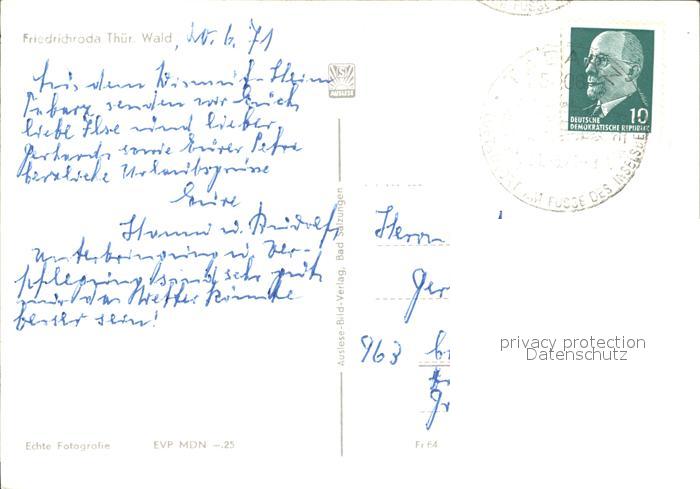 Friedrichroda Thür. Wald
20.6.71
Aus dem Wismut-Heim
Tabarz senden wir Euch
liebe Ilse und lieber
Gerhardt sowie Eurer Petra
herzliche Urlaubsgrüsse
Eure
Hanni u. Rudolf
Unterbringung u. Ver-
pflegung sind sehr gut
nur das Wetter könnte
besser sein!
AUSLESE
Auslese-Bild-Verlag, Bad Salzungen
10
DEUTSCHE
DEMOKRATISCHE REPUBLIK
AM FUSSE DES INSELSBE
Herrn
Ger
963
privacy protection
Datenschutz
Echte Fotografie
EVP MDN –.25
Fr 64